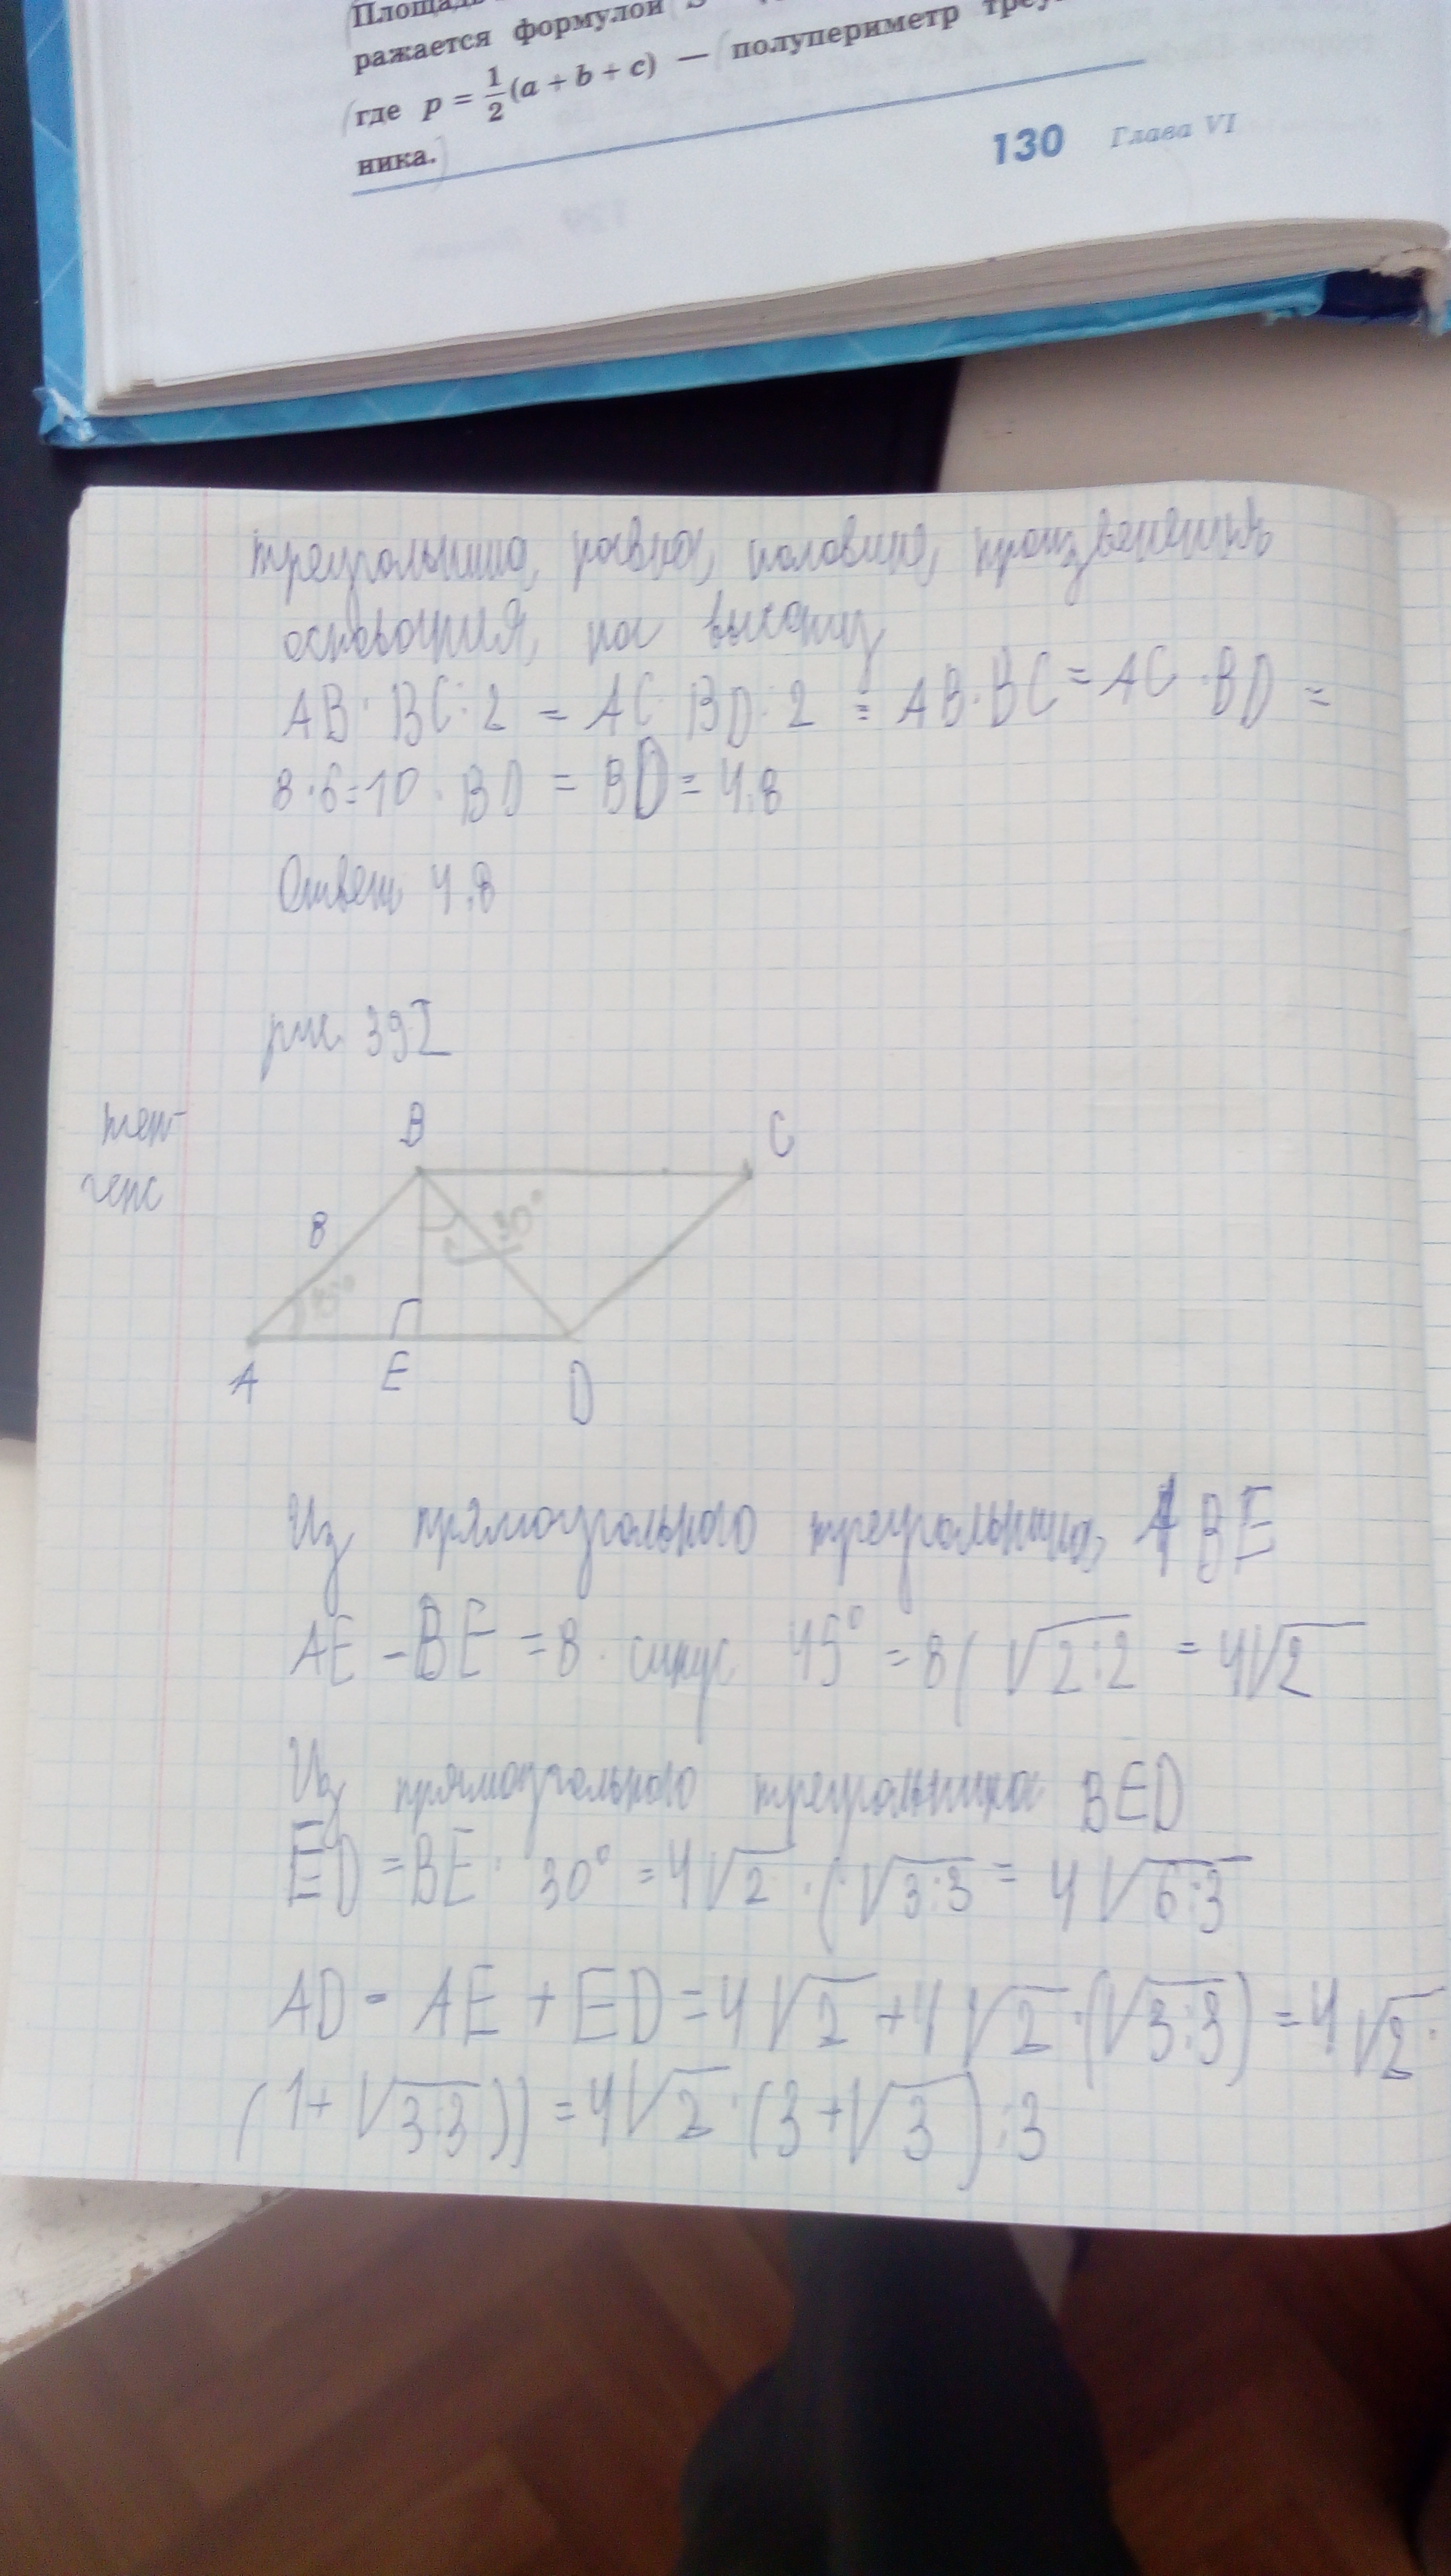 Площадь
ражается формулой S
где p = 1/2 (a + b + c) — полупериметр треу
ника.
130 Глава VI
треугольника равна половине произведения
основания на высоту
AB · BC : 2 = AC · BD : 2 = AB · BC = AC · BD =
8 · 6 = 10 · BD = BD = 4.8
Ответ 4.8
рис. 392
тен-
генс
B C
8 30°
A E D
Из прямоугольного треугольника ABE
AE - BE = 8 · синус 45° = 8 ( √2:2 = 4√2
Из прямоугольного треугольника BED
ED = BE · 30° = 4√2 · ( √3:3 = 4√6:3
AD - AE + ED = 4√2 + 4√2 · (√3:3) = 4√2 ·
(1 + √3:3)) = 4√2 · (3 + √3) : 3